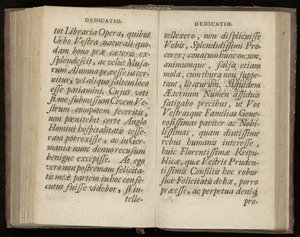 DEDICATIO.
tot Libraria Opera, quibus
Urbs Vestra naturali quo-
dam bono præ cæteris ex-
splendescit, ac velut Musa-
rum Alumna præesse is cer-
nitur; vel aliqua saltem loco
esse patiamini. Cujus voti
si me submissum Civem Ve-
strum compotem feceritis,
non pœnitebit certe Anglo
Homini hospitalitatis tesse-
ram porrexisse, ac in Ger-
mania nunc denuo recusum
benigne excepisse. At ego
vero non postremam felicita-
tis meæ partem in hoc conse-
cutus fuisse videbor, si in-
telle-
DEDICATIO.
tellexero, non displicuisse
Vobis, Splendidissimi Pro-
ceres; conatum hunc meum,
animumque, salsa etiam
mola, cum thura non suppe-
tant, litaturum.
Æternum Numen assiduis
fatigabo precibus, ut Vos
Vestrasque Familias Gene-
rosissimas pariter ac Nobi-
lissimas, quam diutissime
rebus humanis interesse,
huic Florentissimæ Reipu-
blicæ, quæ Vestris Pruden-
tissimis Consiliis hoc robur
suæ Felicitatis debet, porro
præesse, ac perpetua denique
pro-